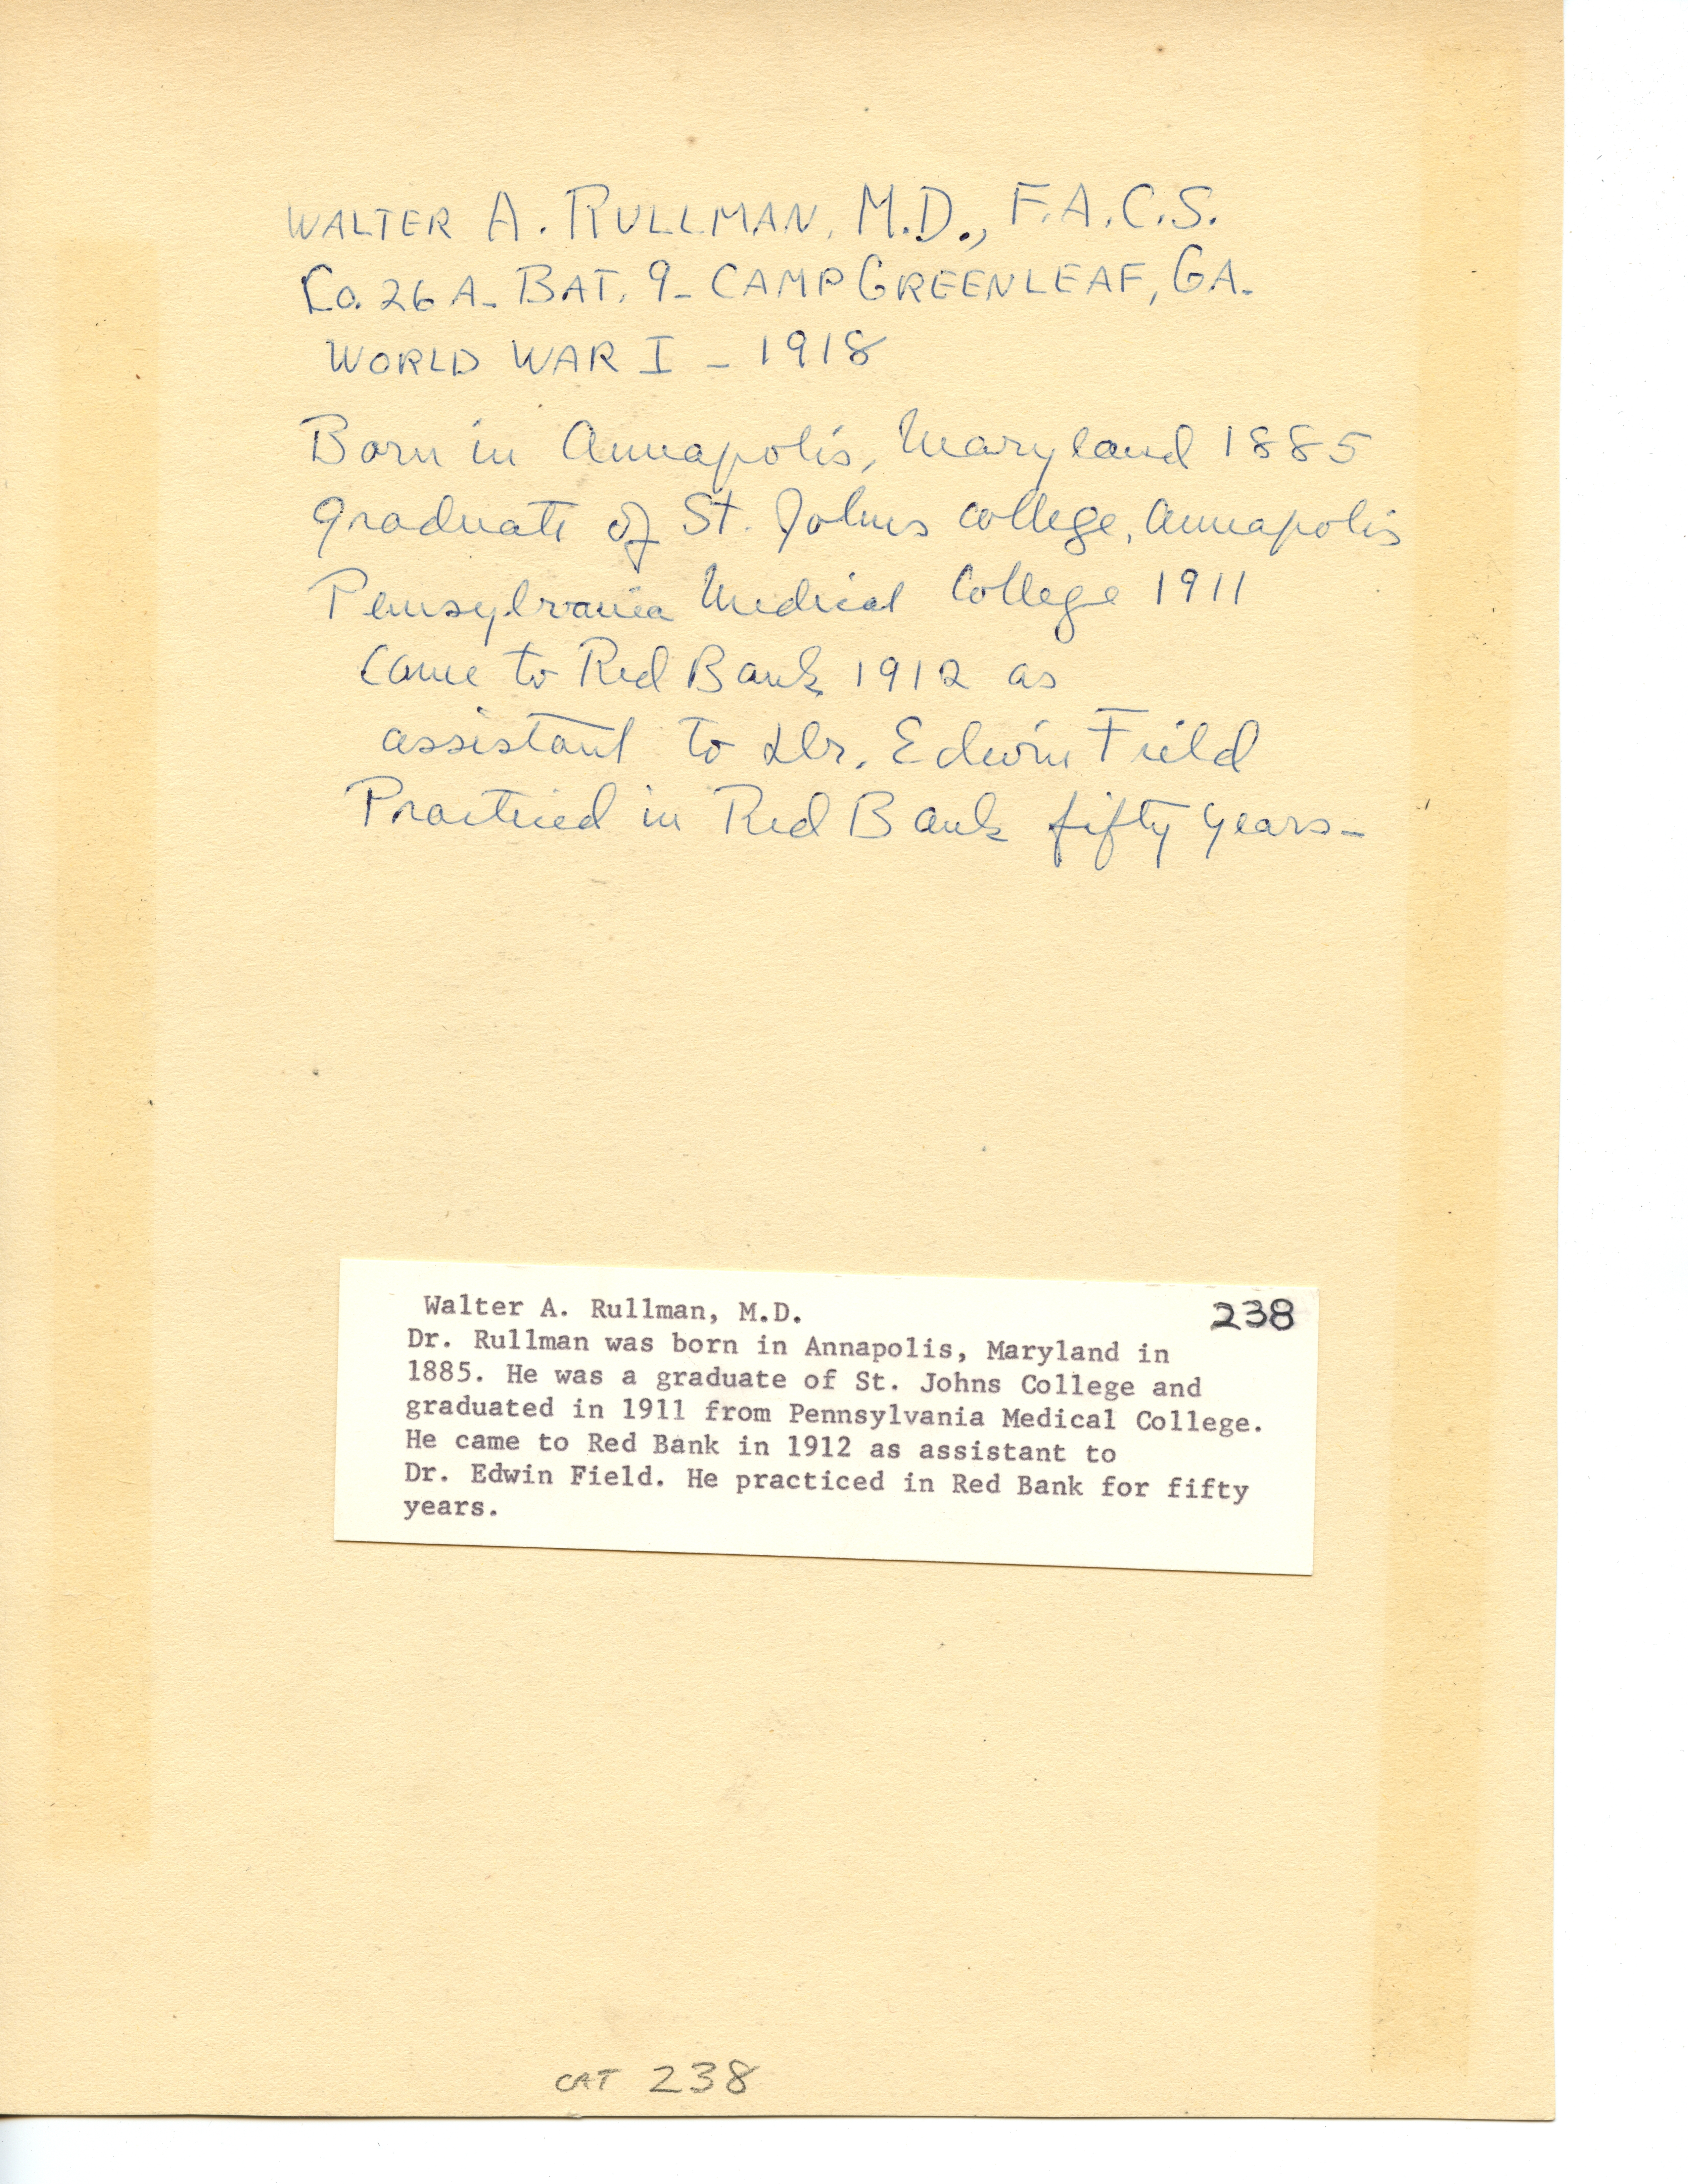 WALTER A. RULLMAN, M.D., F.A.C.S.
Co. 26 A - BAT. 9 - CAMP GREENLEAF, GA.
WORLD WAR I - 1918
Born in Annapolis, Maryland 1885
graduate of St. Johns College, Annapolis
Pennsylvania Medical College 1911
Came to Red Bank 1912 as
assistant to Dr. Edwin Field
Practiced in Red Bank fifty years -
Walter A. Rullman, M.D. 238
Dr. Rullman was born in Annapolis, Maryland in
1885. He was a graduate of St. Johns College and
graduated in 1911 from Pennsylvania Medical College.
He came to Red Bank in 1912 as assistant to
Dr. Edwin Field. He practiced in Red Bank for fifty
years.
CAT 238